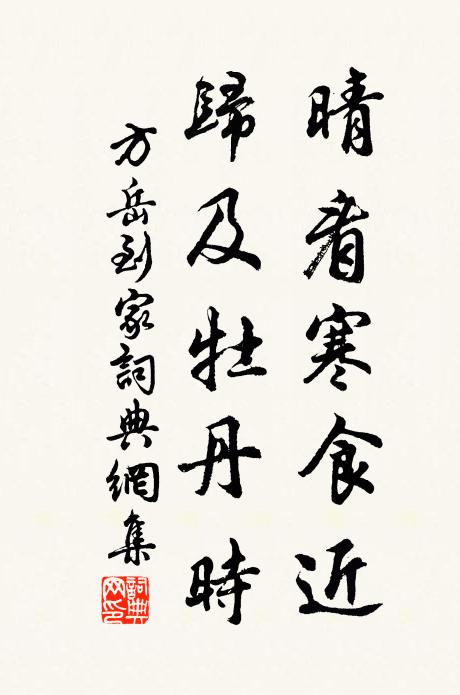 晴看寒食近
歸及牡丹時
方岳到家詞典網集
詞典網印